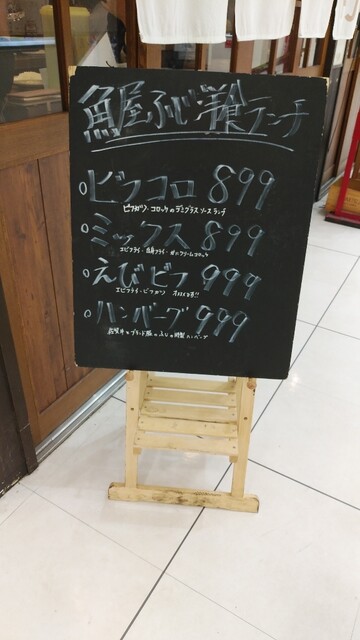 魚屋ふじ洋食ランチ
○ビフコロ 899
ビフカツ・コロッケのデミグラスソースランチ
○ミックス 899
エビフライ・白身フライ・カニクリームコロッケ
○えびビフ 999
エビフライ・ビフカツ オススメ!!
○ハンバーグ 999
特製ハンバーグ